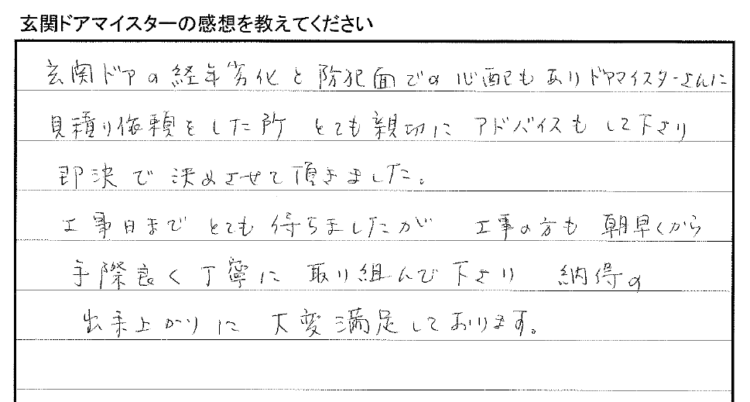 玄関ドアマイスターの感想を教えてください
玄関ドアの経年劣化と防犯面での心配もありドアマイスターさんに
見積り依頼をした所 とても親切に アドバイスもして下さり
即決で決めさせて頂きました。
工事日まで とても待ちましたが 工事の方も 朝早くから
手際良く丁寧に 取り組んで下さり 納得の
出来上がりに 大変満足しております。